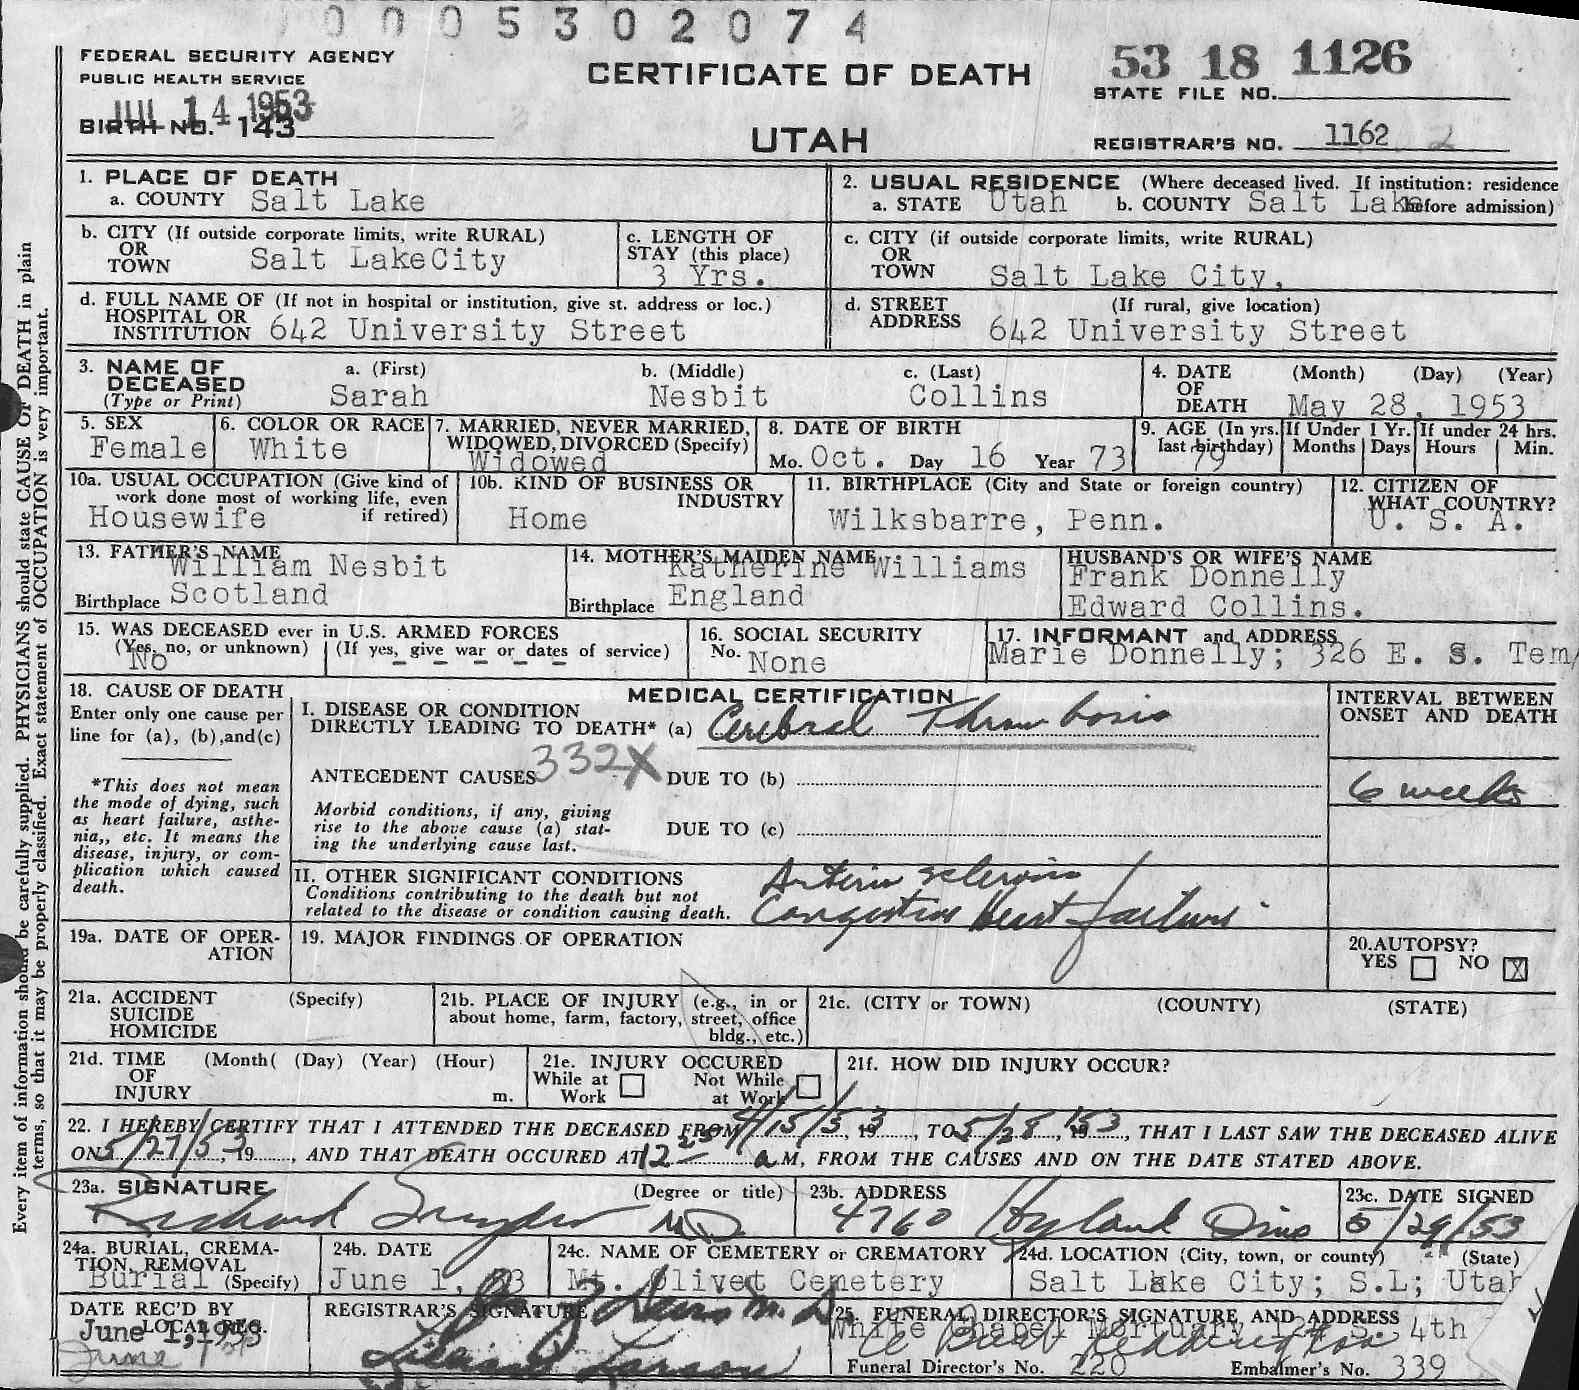 0005302074
FEDERAL SECURITY AGENCY
PUBLIC HEALTH SERVICE
JUL 14 1953
BIRTH NO. 143
CERTIFICATE OF DEATH
UTAH
53 18 1126
STATE FILE NO.
REGISTRAR'S NO. 1162 2
1. PLACE OF DEATH
a. COUNTY Salt Lake
b. CITY (If outside corporate limits, write RURAL)
OR
TOWN Salt LakeCity
c. LENGTH OF
STAY (this place)
3 Yrs.
d. FULL NAME OF (If not in hospital or institution, give st. address or loc.)
HOSPITAL OR
INSTITUTION 642 University Street
2. USUAL RESIDENCE (Where deceased lived. If institution: residence
a. STATE Utah b. COUNTY Salt Lake before admission)
c. CITY (if outside corporate limits, write RURAL)
OR
TOWN Salt Lake City,
d. STREET (If rural, give location)
ADDRESS 642 University Street
3. NAME OF a. (First) b. (Middle) c. (Last)
DECEASED
(Type or Print) Sarah Nesbit Collins
4. DATE (Month) (Day) (Year)
OF
DEATH May 28, 1953
5. SEX
Female
6. COLOR OR RACE
White
7. MARRIED, NEVER MARRIED,
WIDOWED, DIVORCED (Specify)
Widowed
8. DATE OF BIRTH
Mo. Oct. Day 16 Year 73
9. AGE (In yrs.
last birthday)
79
If Under 1 Yr.
Months Days
If under 24 hrs.
Hours Min.
10a. USUAL OCCUPATION (Give kind of
work done most of working life, even
if retired)
Housewife
10b. KIND OF BUSINESS OR
INDUSTRY
Home
11. BIRTHPLACE (City and State or foreign country)
Wilksbarre, Penn.
12. CITIZEN OF
WHAT COUNTRY?
U. S. A.
13. FATHER'S NAME
William Nesbit
Birthplace Scotland
14. MOTHER'S MAIDEN NAME
Katherine Williams
Birthplace England
HUSBAND'S OR WIFE'S NAME
Frank Donnelly
Edward Collins.
15. WAS DECEASED ever in U.S. ARMED FORCES
(Yes, no, or unknown) (If yes, give war or dates of service)
No - - - - - -
16. SOCIAL SECURITY
No. None
17. INFORMANT and ADDRESS
Marie Donnelly; 326 E. S. Tem
18. CAUSE OF DEATH
Enter only one cause per
line for (a), (b),and(c)
*This does not mean
the mode of dying, such
as heart failure, asthe-
nia,, etc. It means the
disease, injury, or com-
plication which caused
death.
MEDICAL CERTIFICATION
I. DISEASE OR CONDITION
DIRECTLY LEADING TO DEATH* (a) Cerebral Thrombosis
332X
ANTECEDENT CAUSES DUE TO (b)
Morbid conditions, if any, giving
rise to the above cause (a) stat-
ing the underlying cause last.
DUE TO (c)
II. OTHER SIGNIFICANT CONDITIONS
Conditions contributing to the death but not
related to the disease or condition causing death.
Arterio sclerosis
Congestive Heart failure
INTERVAL BETWEEN
ONSET AND DEATH
6 weeks
19a. DATE OF OPER-
ATION
19. MAJOR FINDINGS OF OPERATION
20.AUTOPSY?
YES NO X
21a. ACCIDENT (Specify)
SUICIDE
HOMICIDE
21b. PLACE OF INJURY (e.g., in or
about home, farm, factory, street, office
bldg., etc.)
21c. (CITY or TOWN) (COUNTY) (STATE)
21d. TIME (Month( (Day) (Year) (Hour)
OF
INJURY m.
21e. INJURY OCCURED
While at Work Not While at Work
21f. HOW DID INJURY OCCUR?
22. I HEREBY CERTIFY THAT I ATTENDED THE DECEASED FROM 4/15/53, 19, TO 5/28, 1953, THAT I LAST SAW THE DECEASED ALIVE
ON 5/27/53, 19, AND THAT DEATH OCCURED AT 12 25 a M, FROM THE CAUSES AND ON THE DATE STATED ABOVE.
23a. SIGNATURE (Degree or title)
Richard Snyder MD
23b. ADDRESS
4760 Hyland Drive
23c. DATE SIGNED
5/29/53
24a. BURIAL, CREMA-
TION, REMOVAL
Burial (Specify)
24b. DATE
June 1, 53
24c. NAME OF CEMETERY or CREMATORY
Mt. Olivet Cemetery
24d. LOCATION (City, town, or county) (State)
Salt Lake City; S.L; Utah
DATE REC'D BY
LOCAL REG.
June 1,1953
June 1st
REGISTRAR'S SIGNATURE
M. D.
Larson
25. FUNERAL DIRECTOR'S SIGNATURE AND ADDRESS
White Chapel Mortuary 124 S. 4th
Funeral Director's No. 220 Embalmer's No. 339
Every item of information should be carefully supplied. PHYSICIANS should state CAUSE OF DEATH in plain
terms, so that it may be properly classified. Exact statement of OCCUPATION is very important.